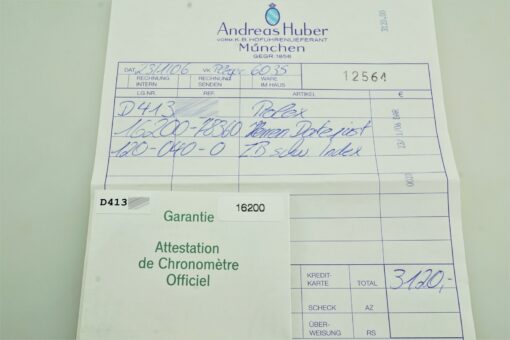 Andreas Huber
VORM. K.B. HOFUHRENLIEFERANT
München
GEGR. 1856
3120,00
DAT. 23/1/06 VK. 6035
RECHNUNG INTERN RECHNUNG SENDEN WARE IM HAUS 12561
LG.NR. REF. ARTIKEL €
D413 Rolex
16200-78360 Herren Datejust
120-040-0 ZB schw Index
23/1/06 EUR
D413 16200
Garantie
Attestation
de Chronomètre
Officiel
KREDIT-KARTE TOTAL 3120,-
SCHECK AZ
ÜBER-WEISUNG RS